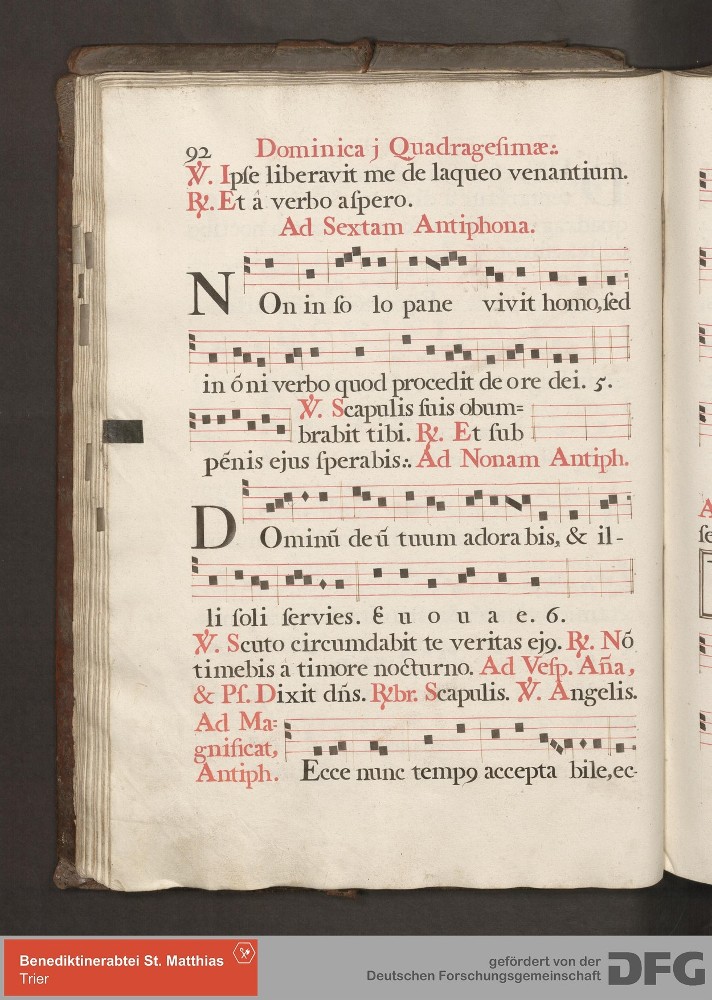 92 Dominica j Quadrageſimæ:.
℣. Ipſe liberavit me de laqueo venantium.
℟. Et â verbo aſpero.
Ad Sextam Antiphona.
NOn in ſo lo pane vivit homo, ſed
in ōni verbo quod procedit de ore dei. 5.
℣. Scapulis ſuis obum=
brabit tibi. ℟. Et ſub
pēnis ejus ſperabis:. Ad Nonam Antiph.
DOminū deū tuum adora bis, & il-
li ſoli ſervies. E u o u a e. 6.
℣. Scuto circumdabit te veritas ejꝰ. ℟. Nō
timebis a timore nocturno. Ad Veſp. Aña,
& Pſ. Dixit dñs. ℟br. Scapulis. ℣. Angelis.
Ad Ma=
gnificat,
Antiph. Ecce nunc tempꝰ accepta bile, ec-
Benediktinerabtei St. Matthias
Trier
gefördert von der
Deutschen Forschungsgemeinschaft
DFG